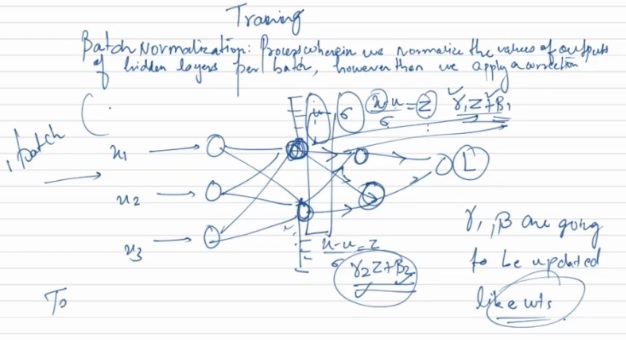 Training
Batch Normalization: Process wherein we normalize the values of outputs
of hidden layers per batch, however then we apply a correction
μ σ x-μ/σ = Z γ1Z+β1
1 batch
x1
x2
x3
L
x-μ/σ = Z
γ2Z+β2
γ1, β are going
to be updated
like wts
To